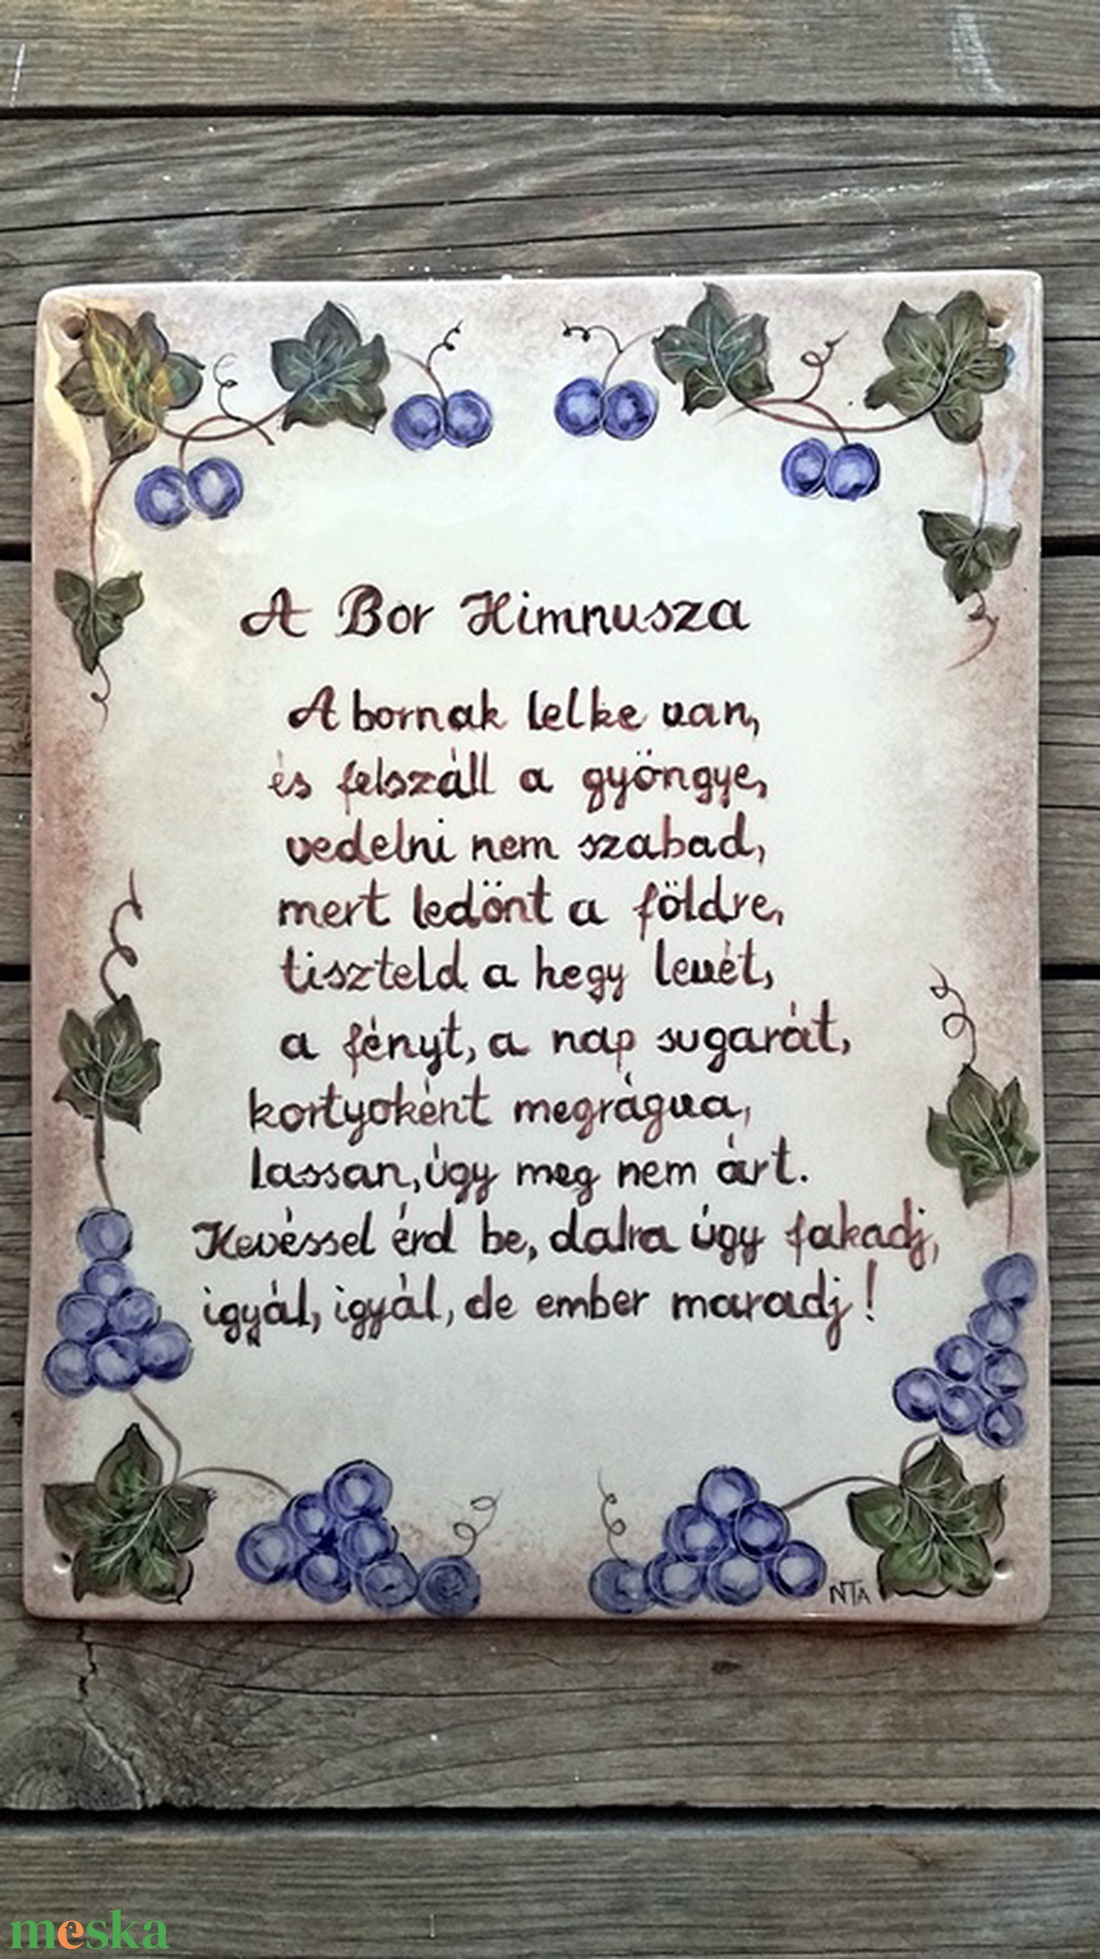 A Bor Himnusza
A bornak lelke van,
és felszáll a gyöngye,
vedelni nem szabad,
mert ledönt a földre,
tiszteld a hegy levét,
a fényt, a nap sugarát,
kortyoként megrágva,
lassan, úgy meg nem árt.
Kevéssel érd be, dalra úgy fakadj,
igyál, igyál, de ember maradj!
NTA
meska